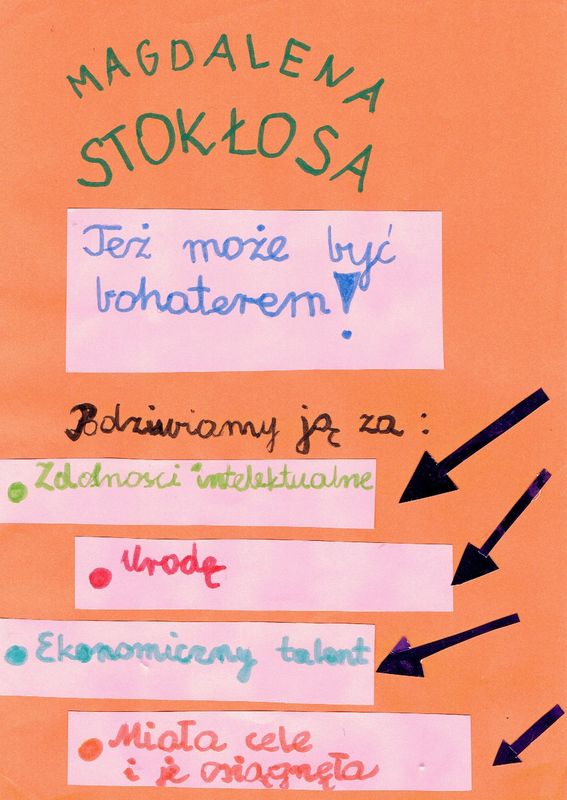 MAGDALENA
STOKŁOSA
Też może być
bohaterem!
Podziwiamy ją za:
Zdolności intelektualne
Urodę
Ekonomiczny talent
Miała cele
i je osiągnęła